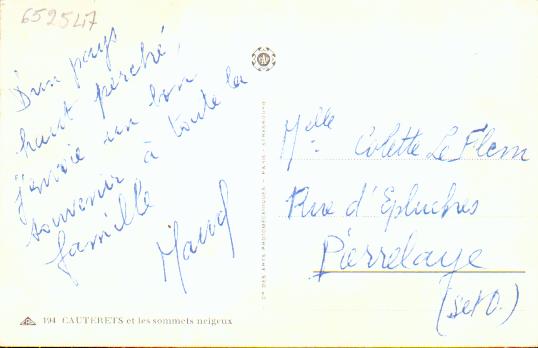 6525417
D'un pays
haut perché,
j'envoie un bon
souvenir à toute la
famille
Maud
Melle Colette Le Flem
Rue d'Epluches
Pierrelaye
(S et O.)
Cie DES ARTS PHOTOMÉCANIQUES - PARIS - STRASBOURG
194 CAUTERETS et les sommets neigeux